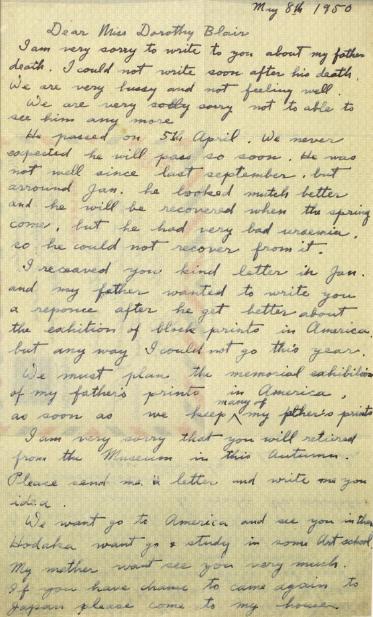 May 8th 1950
Dear Miss Dorothy Blair
I am very sorry to write to you about my father
death. I could not write soon after his death.
We are very bussy and not feeling well.
We are very sorry not to able to
see him any more
He passed on 5th April. We never
expected he will pass so soon. He was
not well since last september. but
arround Jan. he looked mutch better
and he will be recovered when the spring
come, but he had very bad uraemia,
so he could not recover from it.
I receaved you kind letter in Jan.
and my father wanted to write you
a reponce after he get better about
the exhition of block prints in America.
but any way I could not go this year.
We must plan the memorial exhibition
of my father's prints in America,
as soon as we keep many of my father's prints
I am very sorry that you will retired
from the Museum in this Autumn.
Please send me a letter and write me you
idea.
We want go to America and see you in then
Hodaka want go & study in some Art school.
My mother want see you very much.
If you have chance to came again to
Japan please come to my house